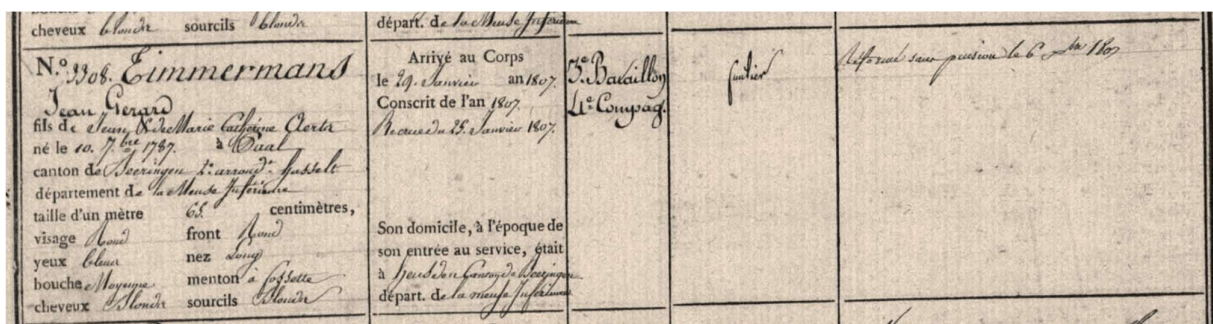 cheveux blonds sourcils blonds
départ. de la Meuse Inférieure
N.º 3308. Timmermans
Jean Gerard
fils de Jean, & de Marie Catherine Aerts
né le 10. 7.bre 1787. à
canton de Beeringen 2.e arrond.t hasselt
département de la Meuse Inférieure
taille d'un mètre 65. centimètres,
visage Rond front Rond
yeux bleus nez Long
bouche Moyenne menton à fossette
cheveux Blonds sourcils Blonds
Arrivé au Corps
le 29. Janvier an 1807.
Conscrit de l'an 1807.
Recrue du 25. Janvier 1807.
Son domicile, à l'époque de
son entrée au service, était
à heusden Canton de Beeringen
départ. de la meuse Inférieure
3.e Bataillon
4.e Compag.
fusilier
Réformé sans pension le 6 1807